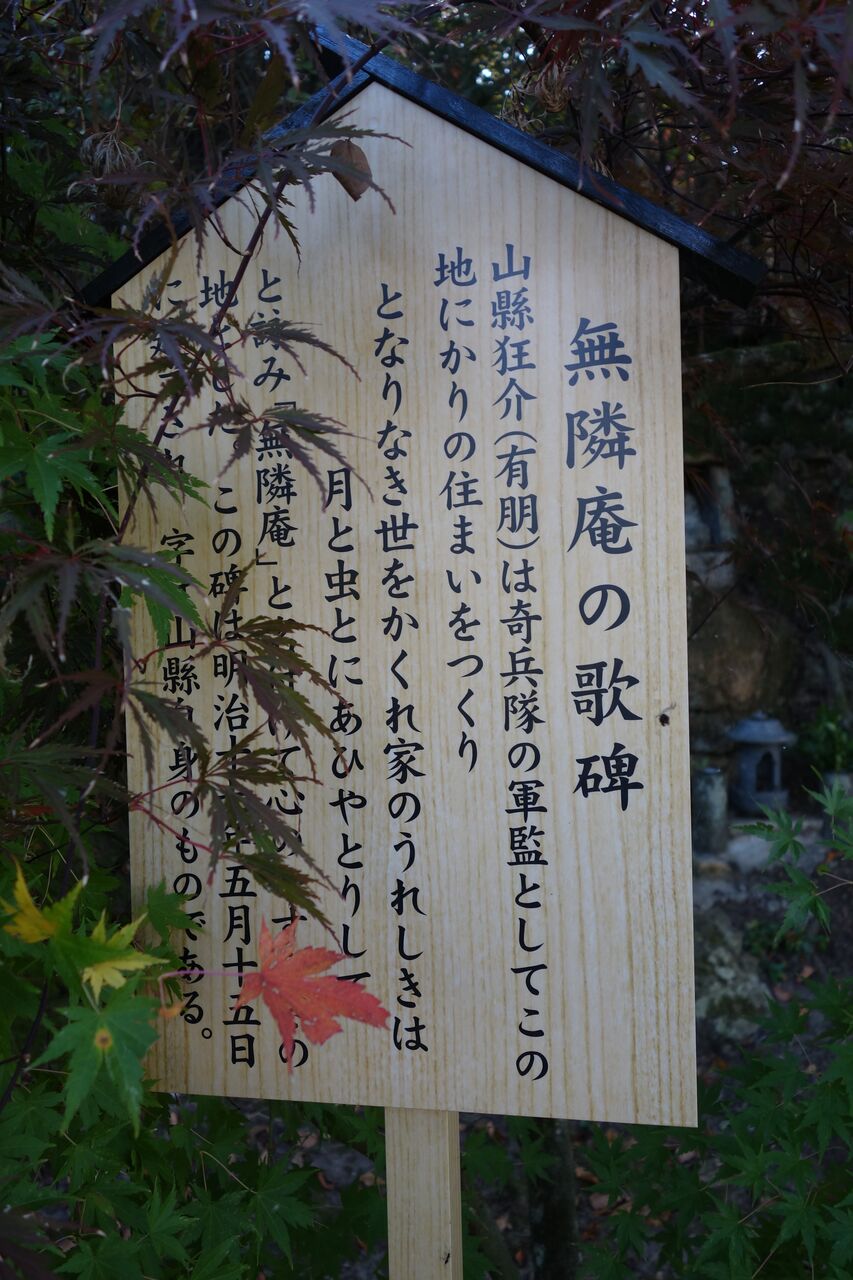 無隣庵の歌碑
山縣狂介(有朋)は奇兵隊の軍監としてこの
地にかりの住まいをつくり
となりなき世をかくれ家のうれしきは
月と虫とにあひやとりして
と詠み「無隣庵」と けて心の す の
地とした この碑は明治十 年五月十五日
に され 字 山縣自身のものである。